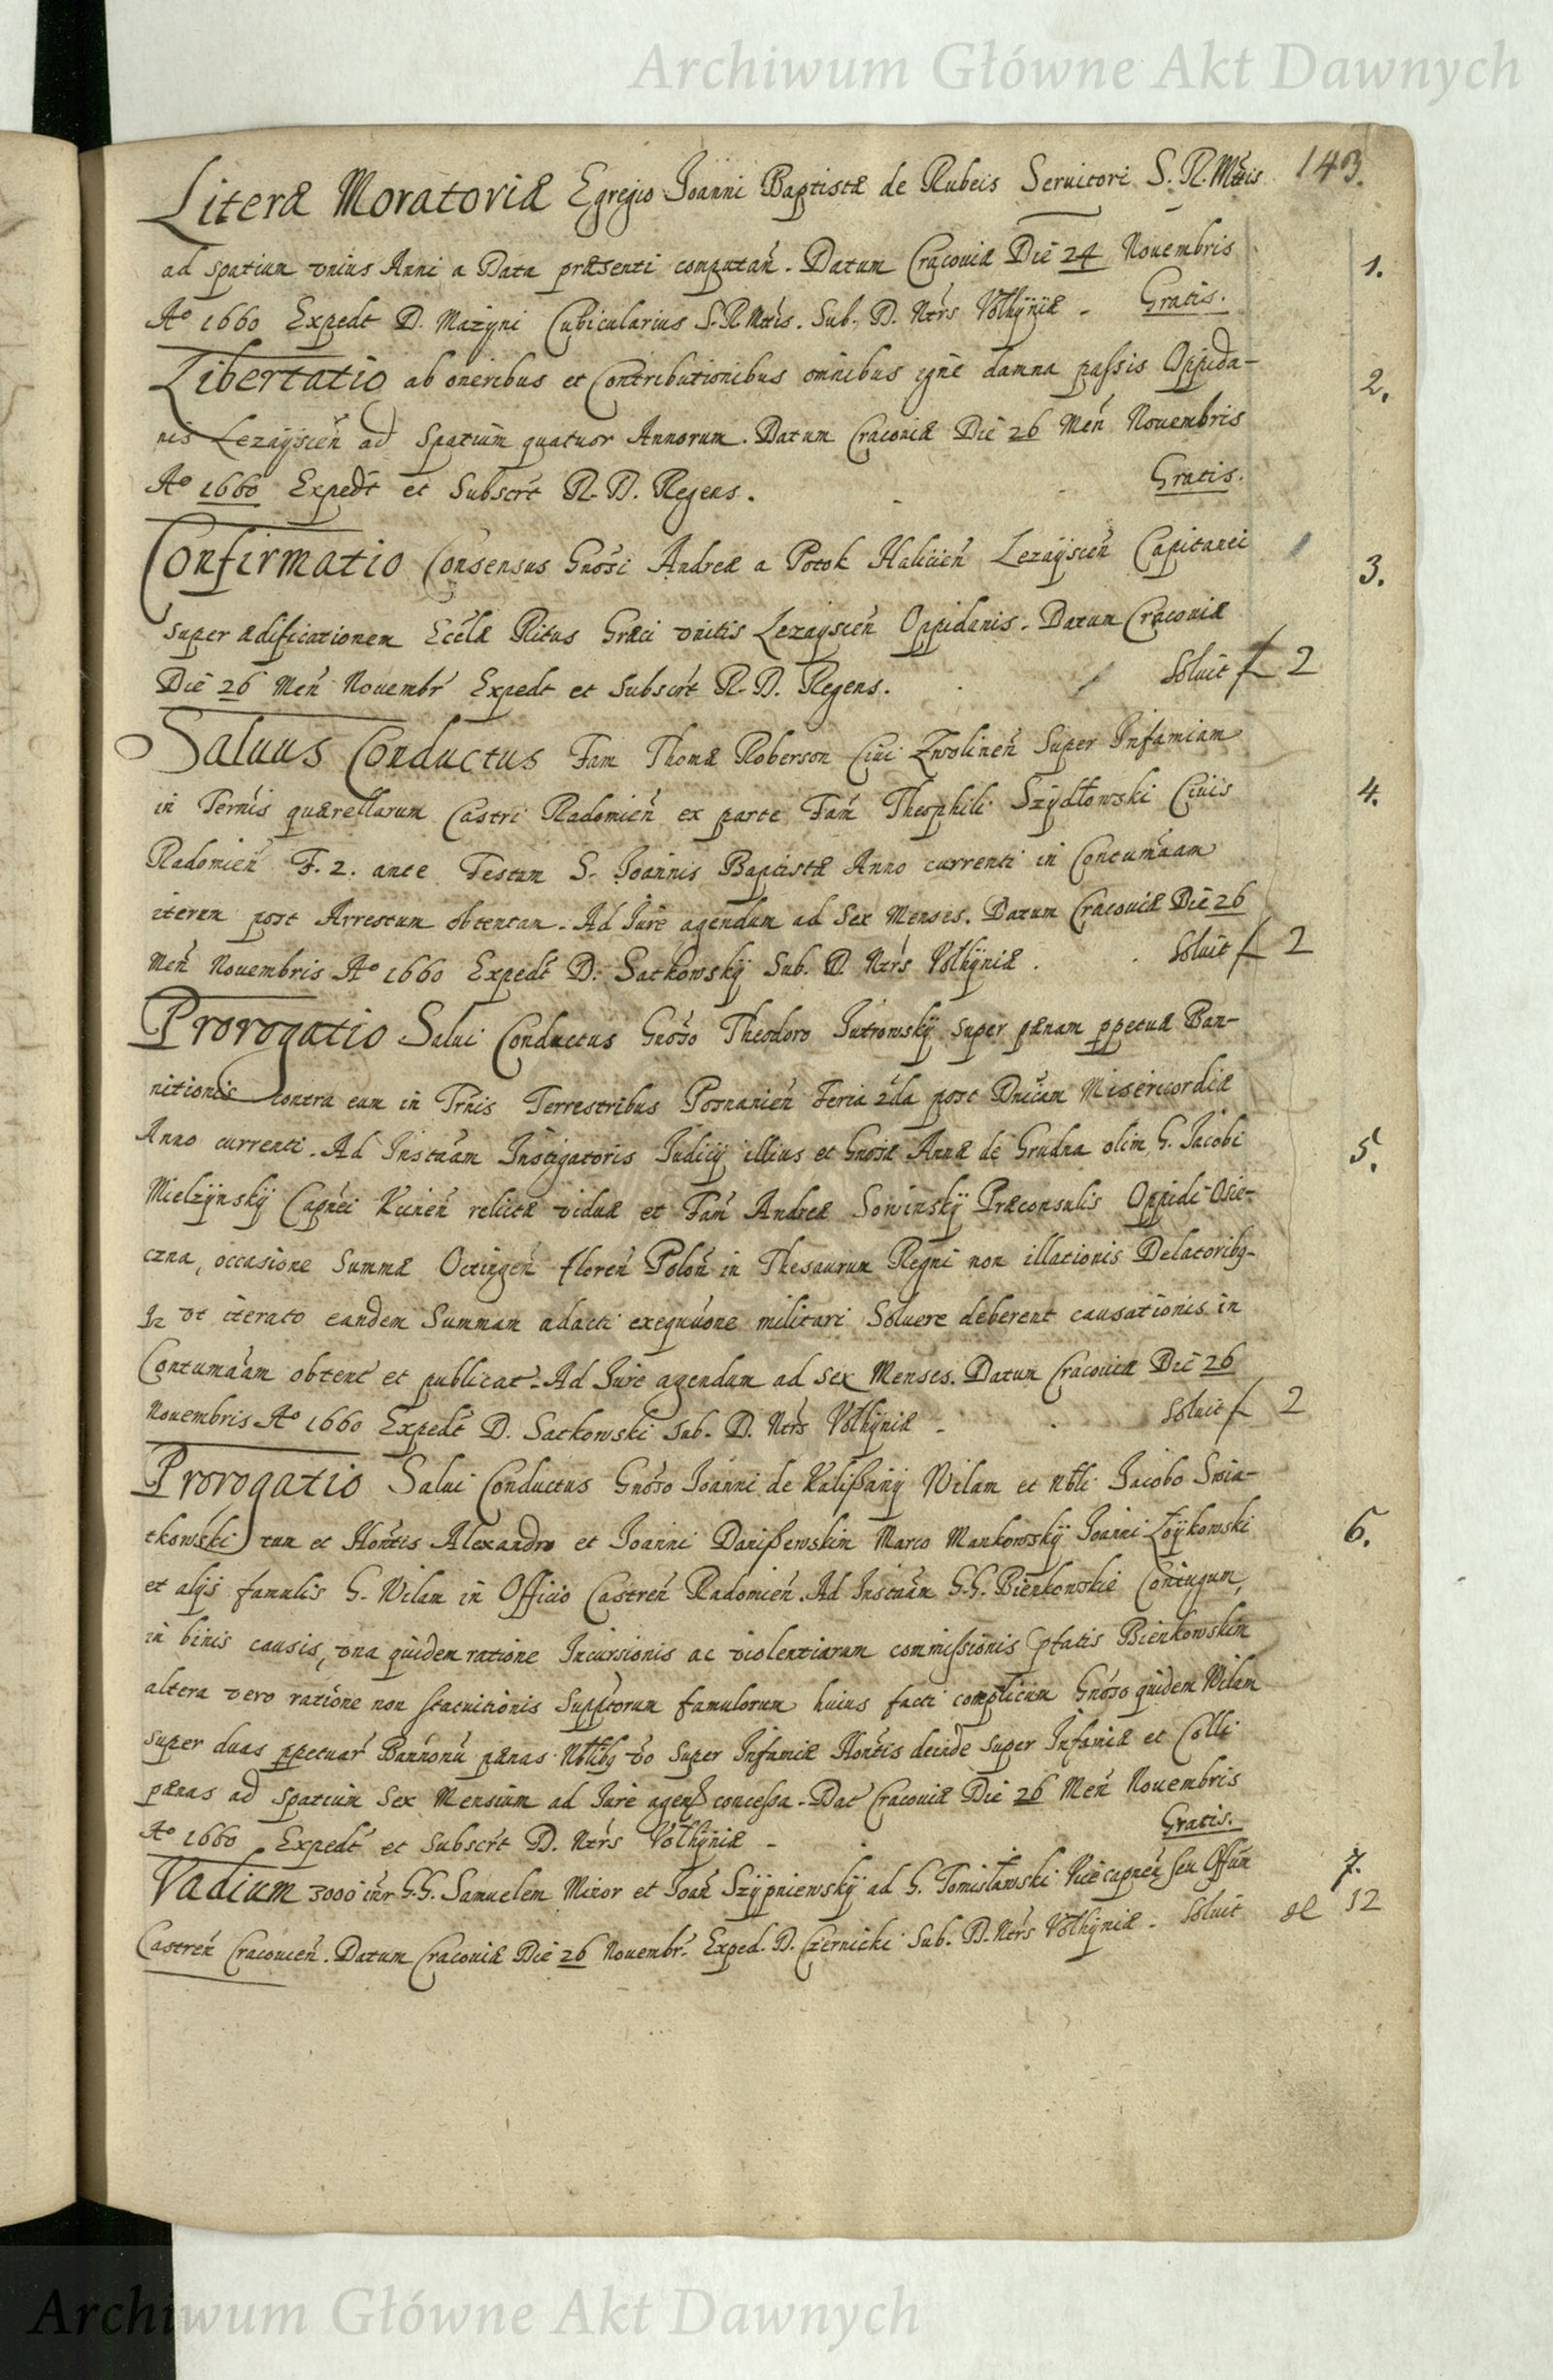 Archiwum Główne Akt Dawnych
143.
Literæ Moratoriæ Egregio Joanni Baptistæ de Rubeis Seruitori S. R. Mttis
ad spatium vnius Anni a Data præsenti computañ. Datum Cracouiæ Die 24 Nouembris
1.
Aº 1660 Expedt D. Mazyni Cubicularius S. R. Mttis. Sub. D. Ntrs Volhyniæ - Gratis.
Libertatio ab oneribus et Contributionibus omnibus igne damna passis Oppida-
2.
nis Lezayscień ad Spatium quatuor Annorum. Datum Cracouiæ Die 26 Meñ Nouembris
Aº 1660 Expedt et Subscrt R. D. Regens. Gratis.
Confirmatio Consensus Gnosi Andreæ a Potok Halicień Lezayscień Capitanei
3.
super ædificationem Eccłæ Ritus Græci vnitis Lezayscień Oppidanis. Datum Cracouiæ
Die 26 Meñ Nouembr Expedt et Subscrt R. D. Regens. Soluit f 2
Saluus Conductus Fam Thomæ Roberson Ciui Zwolineń Super Infamiam
in Termis quærellarum Castri Radomień ex parte Fam Theophili Szydłowski Ciuis
4.
Radomień F. 2. ante Festum S. Joannis Baptistæ Anno currenti in Contumaam
iterum post Arrestum obtentam. Ad Jure agendum ad Sex Menses. Datum Cracouiæ Die 26
Meñ Nouembris Aº 1660 Expedt D. Satkowsky Sub. D. Ntrs Volhyniæ. Soluit f 2
Prorogatio Salui Conductus Gnoso Theodoro Jutrowsky super pænam ppetuæ Ban-
nitionis contra eum in Trnis Terrestribus Posnanień Feria 2da post Dnicam Misericordiæ
Anno currenti. Ad Instaam Instigatoris Judicij illius et Gnosæ Annæ de Grudna olim G. Jacobi
5.
Mielzynsky Capnei Kcineń relictæ viduæ et Fam Andreæ Sowinsky Præconsulis Oppidi Osie-
czna, occasione Summæ Octingeñ floreñ Poloñ in Thesaurum Regni non illationis Delatoribq-
q2 vt iterato eandem Summam adacti exequuone militari Soluere deberent causationis in
Contumaam obtent et publicat. Ad Jure agendum ad Sex Menses. Datum Cracouiæ Die 26
Nouembris Aº 1660 Expedt D. Satkowski Sub. D. Ntrs Volhyniæ - Soluit f 2
Prorogatio Salui Conductus Gnoso Joanni de Kalißany Wilam et Nbli Jacobo Swia-
tkowski tum et Hontis Alexandro et Joanni Danißewskim Marco Mankowsky Joanni Zoykowski
6.
et alijs famulis G. Wilam in Officio Castreń Radomień. Ad Instaam G.G. Bienkowskie Coniugum,
in binis causis, vna quidem ratione Incursionis ac violentiarum commissionis Bienkowskim
altera vero ratione non statuitionis Suppitorum famulorum huius facti complicum Gnoso quidem Wilam
super duas ppetuar Bannonu pænas Nblibq vo Super Infamiæ Hontis deinde super Infamiæ et Colli
pænas ad Spatium Sex Mensium ad Jure ageñ concessa. Dat Cracouiæ Die 26 Meñ Nouembris
Aº 1660 Expedt et Subscrt D. Ntrs Volhyniæ - Gratis.
Vadium 3000 inr G.G. Samuelem Minor et Joañ Szypniewsky ad G. Tomisławski Vicecapneu seu Offun
7.
Castreń Cracouień. Datum Cracouiæ Die 26 Nouembr. Exped. D. Czernicki Sub. D. Ntrs Volhyniæ. Soluit 12
Archiwum Główne Akt Dawnych